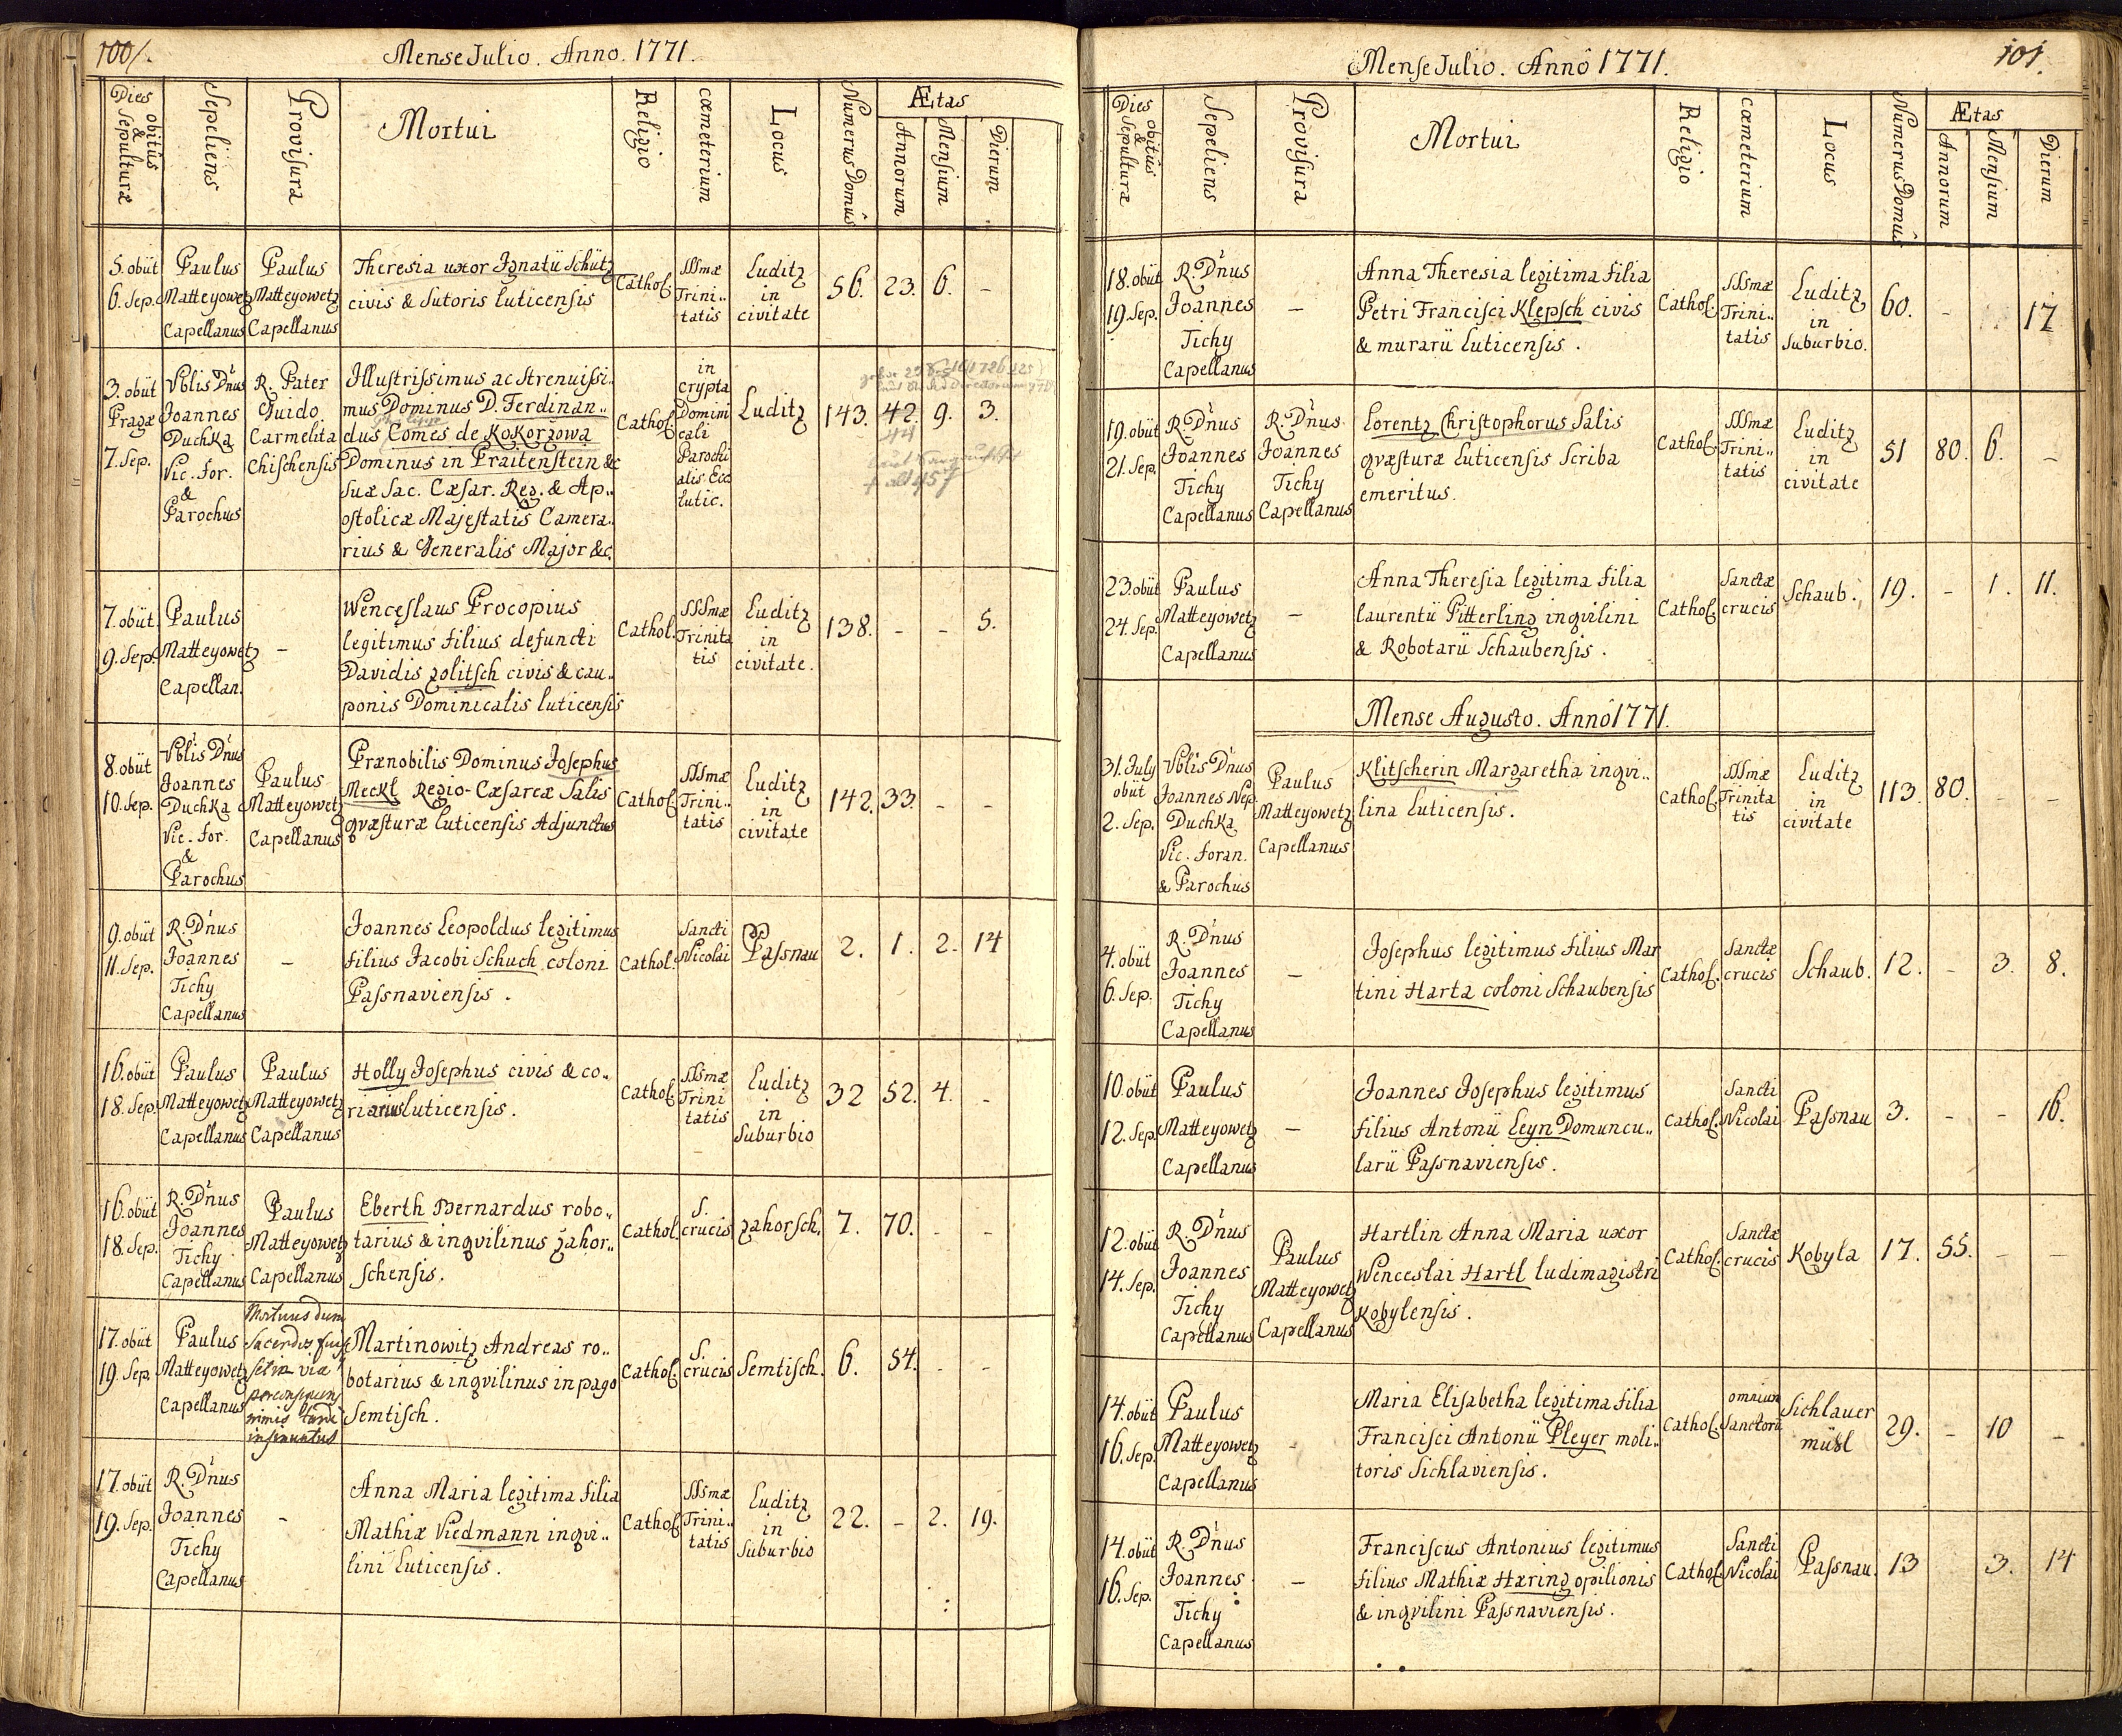 100/.
Mense Julio. Anno. 1771.
Dies obitûs & Sepulturæ
Sepeliens
Provisura
Mortui
Religio
cœmeterium
Locus
Numerus Domûs
Ætas
Annorum
Mensium
Dierum
5. obiit
6. Sep.
Paulus
Matteyowetz
Capellanus
Paulus
Matteyowetz
Capellanus
Theresia uxor Ignatii Schütz
civis & Sutoris Luticensis
Cathol.
SSSmæ
Trini..
tatis
Luditz
in
civitate
56. 23. 6. –
3. obiit
Pragæ
7. Sep.
Vblis D'nus
Joannes
Duchka
Vic. For.
&
Parochus
R. Pater
Guido
Carmelita
Chischensis
Illustrissimus ac Strenuissi..
mus Dominus D. Ferdinan..
dus Comes de Kokorzowa
Dominus in Praitenstein &c
Suæ Sac. Cæsar. Reg. & Ap..
ostolicæ Majestatis Camera..
rius & Generalis Major &c.
Cathol.
in
crypta
Domini
cali
Parochi
alis Ecc
Lutic.
Luditz
143. 42. 9. 3.
44
7. obiit
9. Sep.
Paulus
Matteyowetz
Capellan.
–
Wenceslaus Procopius
legitimus filius defuncti
Davidis Zolitsch civis & cau..
ponis Dominicalis Luticensis
Cathol.
SSSmæ
Trinita
tis
Luditz
in
civitate.
138. – – 5.
8. obiit
10. Sep.
Vblis D'nus
Joannes
Duchka
Vic. For.
&
Parochus
Paulus
Matteyowetz
Capellanus
Prænobilis Dominus Josephus
Meckl Regio-Cæsareæ Salis
qvæsturæ Luticensis Adjunctus
Cathol.
SSSmæ
Trini..
tatis
Luditz
in
civitate
142. 33. – –
9. obiit
11. Sep.
R. D'nus
Joannes
Tichy
Capellanus
–
Joannes Leopoldus legitimus
filius Jacobi Schuch coloni
Passnaviensis.
Cathol.
Sancti
Nicolai
Passnau
2. 1. 2. 14
16. obiit
18. Sep.
Paulus
Matteyowetz
Capellanus
Paulus
Matteyowetz
Capellanus
Holly Josephus civis & co..
riarius Luticensis.
Cathol.
SSSmæ
Trini
tatis
Luditz
in
Suburbio
32 52. 4. –
16. obiit
18. Sep.
R. D'nus
Joannes
Tichy
Capellanus
Paulus
Matteyowetz
Capellanus
Eberth Bernardus robo..
tarius & inqvilinus Zahor..
schensis.
Cathol.
S.
crucis
Zahorsch.
7. 70. – –
17. obiit
19. Sep.
Paulus
Matteyowetz
Capellanus
Mortuus dum
Sacerdos fuis
set in via
perconsequens
nimis tardè
insinuatus
Martinowitz Andreas ro..
botarius & inqvilinus in pago
Semtisch.
Cathol.
S.
crucis
Semtisch.
6. 54. – –
17. obiit
19. Sep.
R. D'nus
Joannes
Tichy
Capellanus
–
Anna Maria legitima filia
Mathiæ Viedmann inqvi..
lini Luticensis.
Cathol.
SSSmæ
Trini..
tatis
Luditz
in
Suburbio
22. – 2. 19.
Mense Julio. Annô 1771.
101.
Dies obitûs & Sepulturæ
Sepeliens
Provisura
Mortui
Religio
cœmeterium
Locus
Numerus Domûs
Ætas
Annorum
Mensium
Dierum
18. obiit
19. Sep.
R. D'nus
Joannes
Tichy
Capellanus
–
Anna Theresia legitima filia
Petri Francisci Klepsch civis
& murarii Luticensis.
Cathol.
SSSmæ
Trini..
tatis
Luditz
in
Suburbio.
60. – 17
19. obiit
21. Sep.
R. D'nus
Joannes
Tichy
Capellanus
R. D'nus
Joannes
Tichy
Capellanus
Lorentz Christophorus Salis
qvæsturæ Luticensis Scriba
emeritus.
Cathol.
SSSmæ
Trini..
tatis
Luditz
in
civitate
51 80. 6. –
23. obiit
24. Sep.
Paulus
Matteyowetz
Capellanus
–
Anna Theresia legitima filia
Laurentii Pitterling inqvilini
& Robotarii Schaubensis.
Cathol.
Sanctæ
crucis
Schaub.
19. – 1. 11.
Mense Augusto. Annô 1771.
31. July
obiit
2. Sep.
Vblis D'nus
Joannes Nep.
Duchka
Vic. Foran.
& Parochus
Paulus
Matteyowetz
Capellanus
Klitscherin Margaretha inqvi..
lina Luticensis.
Cathol.
SSSmæ
Trinita
tis
Luditz
in
civitate
113. 80. – –
4. obiit
6. Sep.
R. D'nus
Joannes
Tichy
Capellanus
–
Josephus legitimus filius Mar
tini Harta coloni Schaubensis
Cathol.
Sanctæ
crucis
Schaub.
12. – 3. 8.
10. obiit
12. Sep.
Paulus
Matteyowetz
Capellanus
–
Joannes Josephus legitimus
filius Antonii Leyn Domuncu..
larii Passnaviensis.
Cathol.
Sancti
Nicolai
Passnau
3. – – 16.
12. obiit
14. Sep.
R. D'nus
Joannes
Tichy
Capellanus
Paulus
Matteyowetz
Capellanus
Hartlin Anna Maria uxor
Wenceslai Hartl ludimagistri
Kobylensis.
Cathol.
Sanctæ
crucis
Kobyla
17. 55. – –
14. obiit
16. Sep.
Paulus
Matteyowetz
Capellanus
–
Maria Elisabetha legitima filia
Francisci Antonii Pleyer moli..
toris Sichlaviensis.
Cathol.
omnium
Sanctorū
Sichlauer
mühl
29. – 10 –
14. obiit
16. Sep.
R. D'nus
Joannes
Tichy
Capellanus
–
Franciscus Antonius legitimus
filius Mathiæ Hæring opilionis
& inqvilini Passnaviensis.
Cathol.
Sancti
Nicolai
Passnau.
13 3. 14